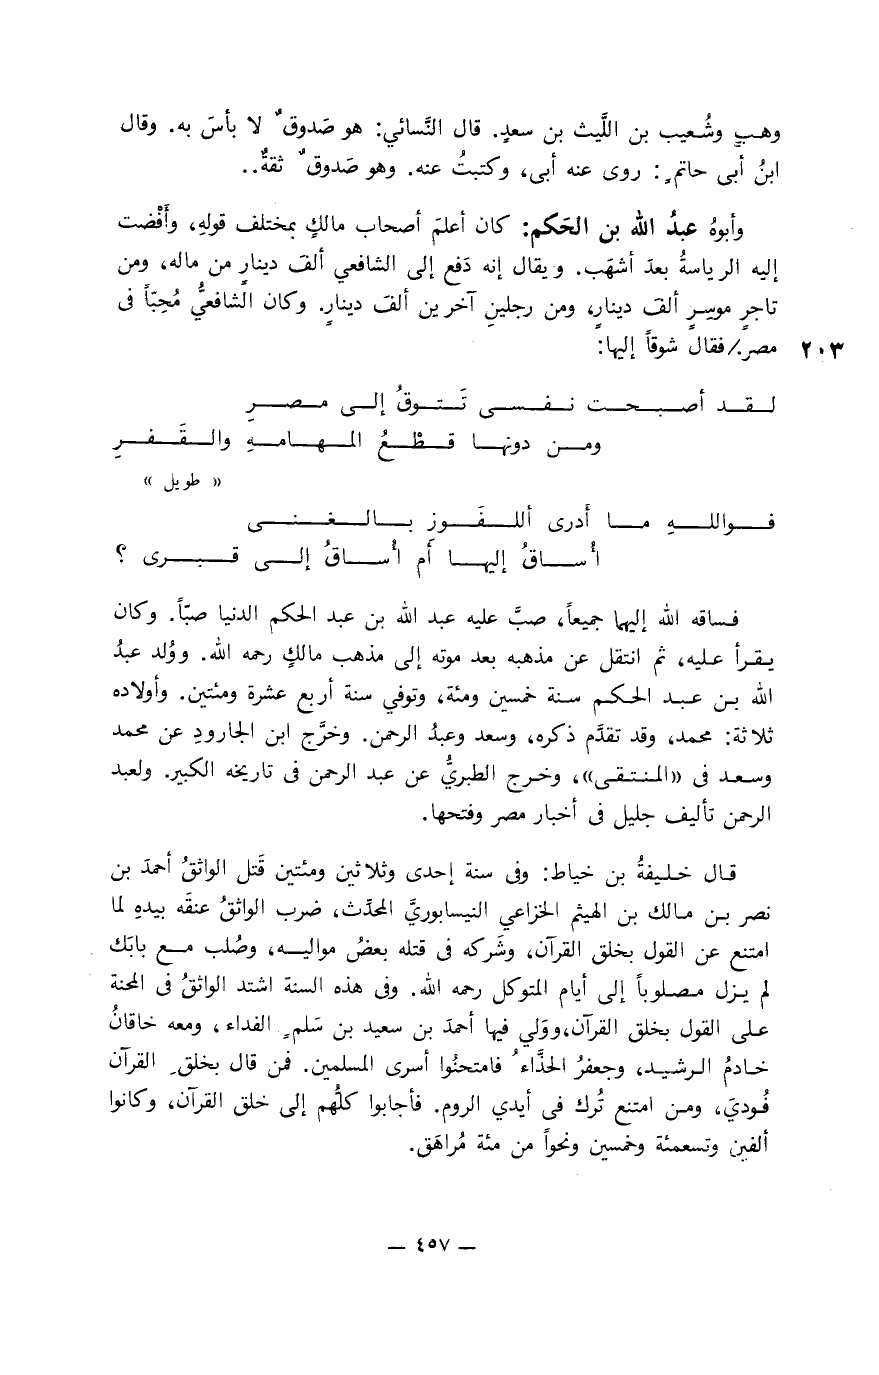 وهبٍ وشُعيب بن اللَّيث بن سعدٍ. قال النَّسائي: هو صَدوقٌ لا بأسَ به. وقال
ابنُ أبى حاتمٍ: روى عنه أبى، وكتبتُ عنه. وهو صَدوقٌ ثقةٌ..
وأبوهُ عبدُ الله بن الحَكم: كان أعلمَ أصحاب مالكٍ بمختلف قولهِ، وأَفْضت
إليه الرياسةُ بعدَ أشهَب. ويقال إنه دَفع إلى الشافعي ألفَ دينارٍ من ماله، ومن
تاجرٍ موسِرٍ ألفَ دينارٍ، ومن رجلينِ آخرين ألفَ دينارٍ. وكان الشافعيُّ مُحِبّاً فى
٢٠٣ مصر./ فقال شوقاً إليها:
لقد أصبحت نفسى تَتوقُ إلى مصرِ
ومن دونها قطْعُ المهامهِ والقَفرِ
« طويل »
فواللهِ ما أدرى أللفَوزِ بالغنى
أُساقُ إليها أم أُساقُ إلى قبرى ؟
فساقه الله إليها جميعاً، صبَّ عليه عبد الله بن عبد الحكم الدنيا صبّاً. وكان
يقرأ عليه، ثم انتقل عن مذهبه بعد موته إلى مذهب مالكٍ رحمه الله. وولد عبدُ
الله بن عبد الحكم سنة خمسين ومئة، وتوفي سنة أربع عشرة ومئتين. وأولاده
ثلاثة: محمد، وقد تقدَّم ذكره، وسعد وعبدُ الرحمن. وخرَّج ابن الجارودِ عن محمد
وسعد فى «المنتقى»، وخرج الطبريُّ عن عبد الرحمن فى تاريخه الكبير. ولعبد
الرحمن تأليف جليل فى أخبار مصر وفتحها.
قال خليفةُ بن خياط: وفى سنة إحدى وثلاثين ومئتين قَتل الواثقُ أحمدَ بن
نصر بن مالك بن الهيثم الخزاعي النيسابوريَّ المحدّث، ضرب الواثقُ عنقَه بيدهِ لما
امتنع عن القول بخلق القرآن، وشَركه فى قتله بعضُ مواليه، وصُلب مع بابَك
لم يزل مصلوباً إلى أيام المتوكل رحمه الله. وفى هذه السنة اشتد الواثقُ فى المحنة
على القول بخلق القرآن،ووَلي فيها أحمدَ بن سعيد بن سَلمٍ الفداء، ومعه خاقانُ
خادمُ الرشيد، وجعفرُ الحذَّاءُ فامتحنُوا أسرى المسلمين. فمن قال بخلقِ القرآن
فُوديَ، ومن امتنع تُرك فى أيدي الروم. فأجابوا كلُّهم إلى خلق القرآن، وكانوا
ألفين وتسعمئة وخمسين ونحواً من مئة مُراهَق.
— ٤٥٧ —